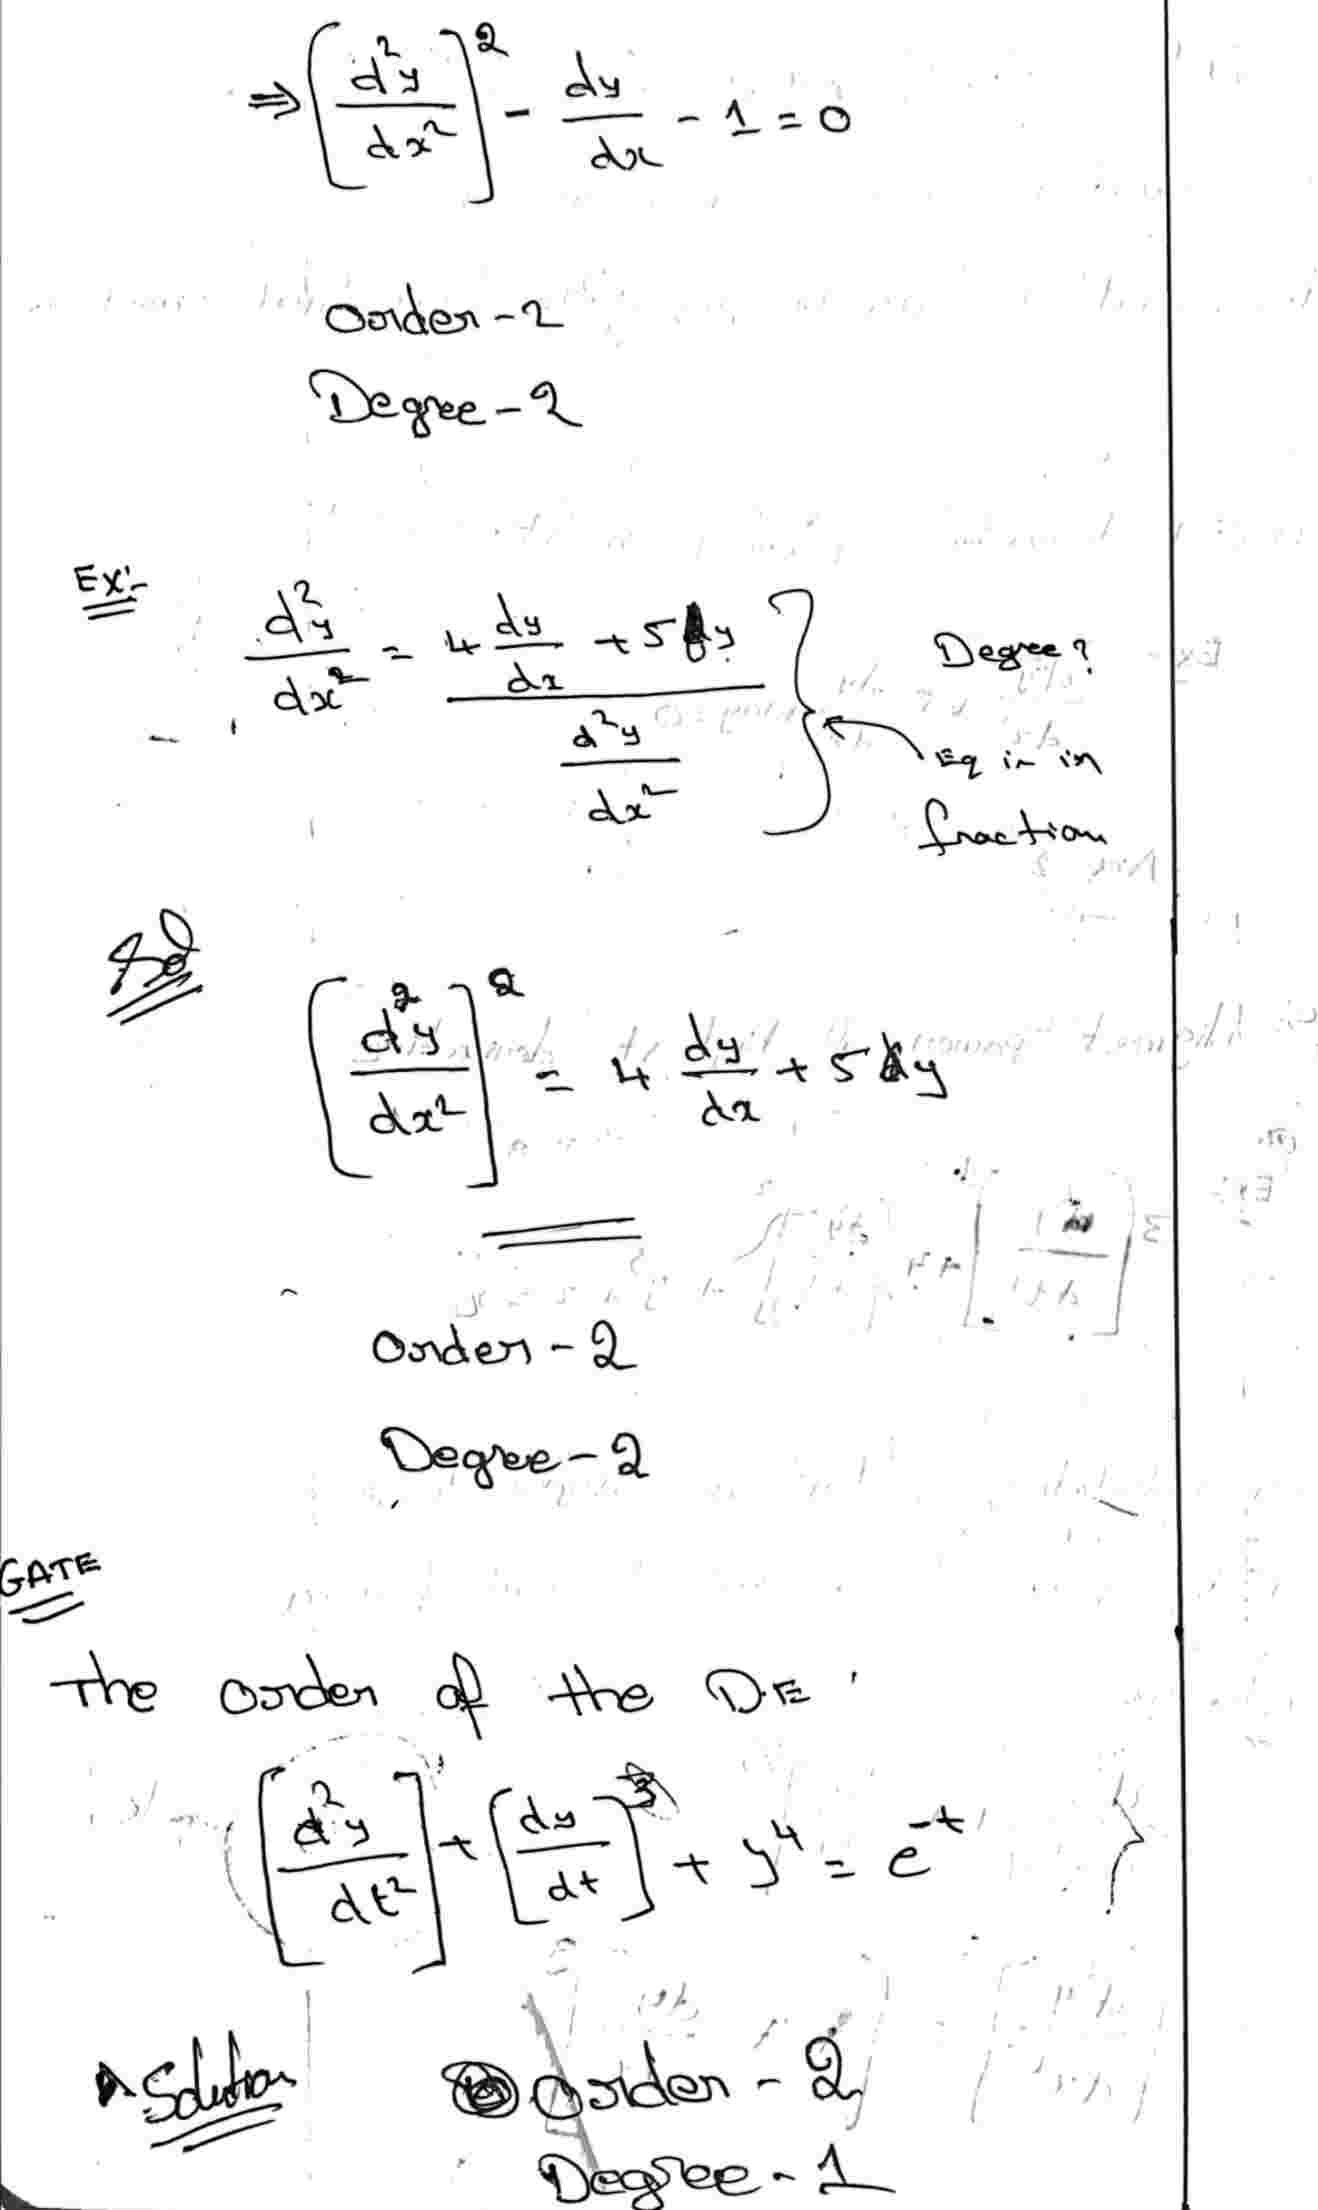 ⇒ [d²y/dx²]² - dy/dx - 1 = 0
Order - 2
Degree - 2
Ex:-
d²y/dx² = (4 dy/dx + 5y) / (d²y/dx²) } Degree?
Eq is in
fraction
Sol
[d²y/dx²]² = 4 dy/dx + 5y
Order - 2
Degree - 2
GATE
The order of the D.E
[d²y/dt²] + [dy/dt]³ + y⁴ = e⁻ᵗ }
Solution
Order - 2
Degree - 1